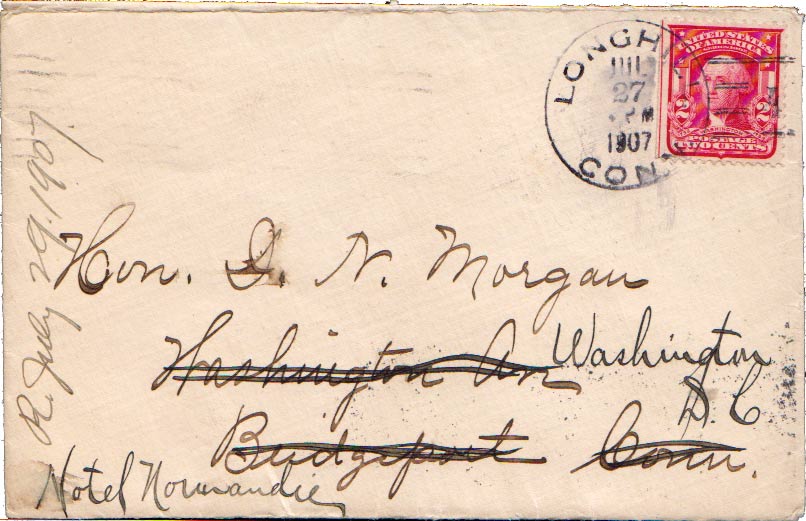 LONGH
JUL
27
PM
1907
CON
UNITED STATES
OF AMERICA
2 2
WASHINGTON
POSTAGE
TWO CENTS
R. July 29. 1907.
Hon. D. N. Morgan
Washington Av Washington
D. C
Bridgeport Conn.
Hotel Normandie